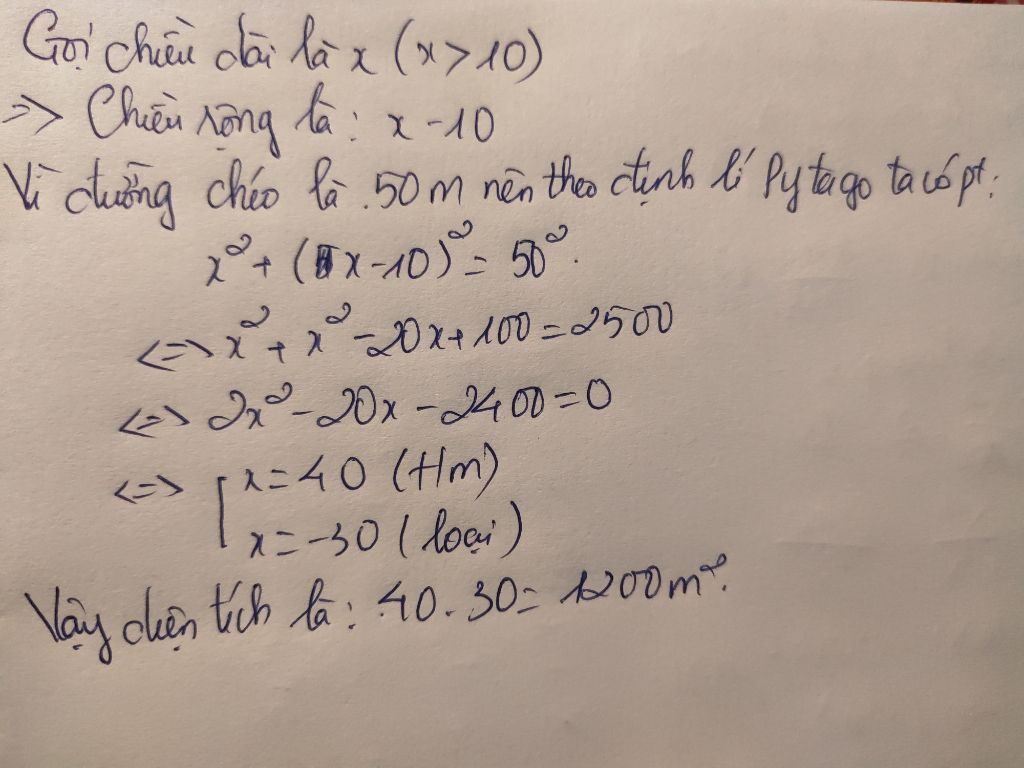 Gọi chiều dài là x (x > 10)
=> Chiều rộng là: x - 10
Vì đường chéo là 50m nên theo định lí Pytago ta có pt:
x² + (x - 10)² = 50².
<=> x² + x² - 20x + 100 = 2500
<=> 2x² - 20x - 2400 = 0
<=> [ x = 40 (t/m)
x = -30 (loại)
Vậy diện tích là: 40 . 30 = 1200m².